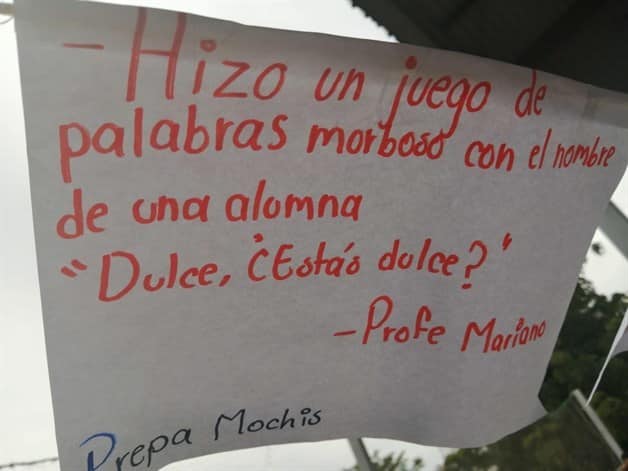 - Hizo un juego de
palabras morboso con el nombre
de una alumna
"Dulce, ¿Estás dulce?"
- Profe Mariano
Prepa Mochis